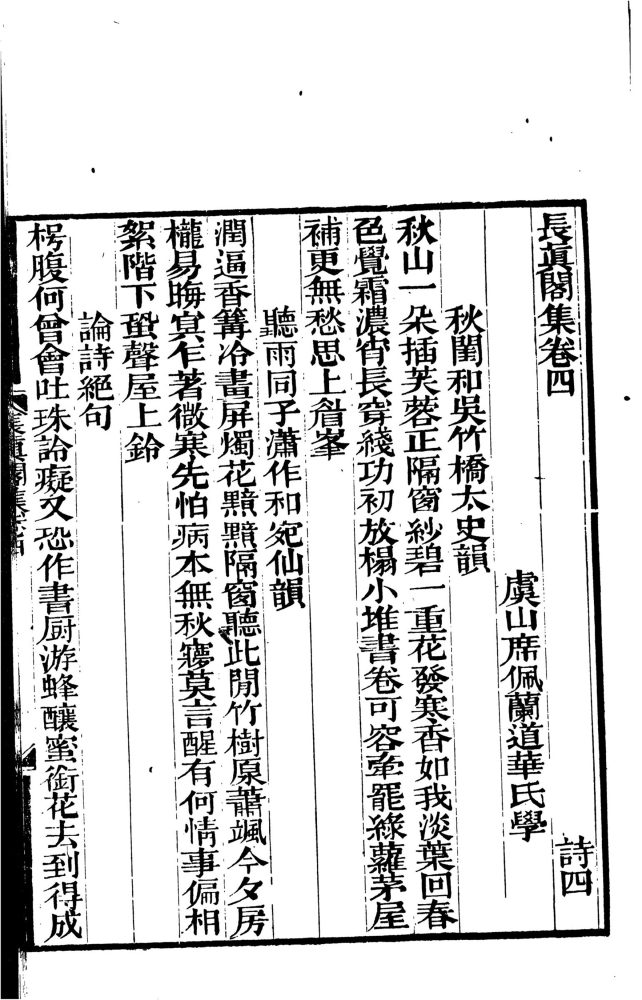 長眞閣集卷四
詩四
虞山席佩蘭道華氏學
秋閨和吳竹橋太史韻
秋山一朵插芙蓉正隔窗紗碧一重花發寒香如我淡葉回春
色覺霜濃宵長穿綫功初放榻小堆書卷可容牽罷綠蘿茅屋
補更無愁思上眉峯
聽雨同子瀟作和宛仙韻
潤逼香篝冷畫屏燭花黯黯隔窗聽此閒竹樹原蕭颯今夕房
櫳易晦冥乍著微寒先怕病本無秋寢莫言醒有何情事偏相
絮階下蛩聲屋上鈴
論詩絕句
枵腹何曾會吐珠詅癡又恐作書厨游蜂釀蜜銜花去到得成
長眞閣集